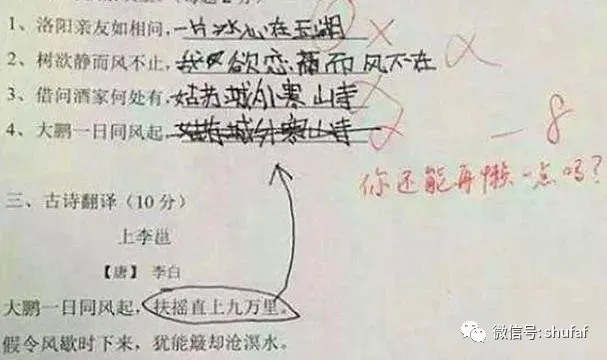 1、洛阳亲友如相问,一片冰心在玉湖
2、树欲静而风不止,我欲恋而风不在
3、借问酒家何处有,姑苏城外寒山寺
4、大鹏一日同风起,姑苏城外寒山寺
-8
你还能再懒一点吗?
三、古诗翻译(10分)
上李邕
【唐】李白
大鹏一日同风起,扶摇直上九万里。
假令风歇时下来,犹能簸却沧溟水。
微信号: shufaf